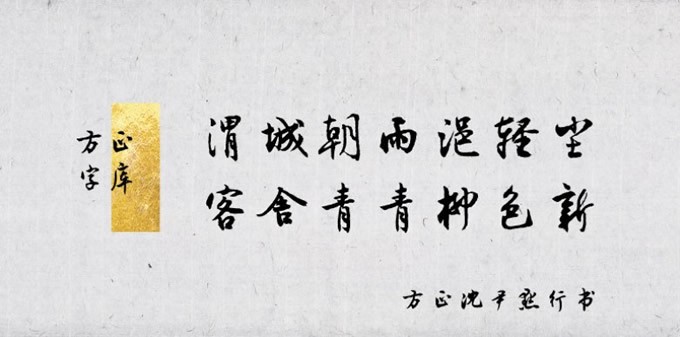 方正
字库
渭城朝雨浥轻尘
客舍青青柳色新
方正沈尹默行书